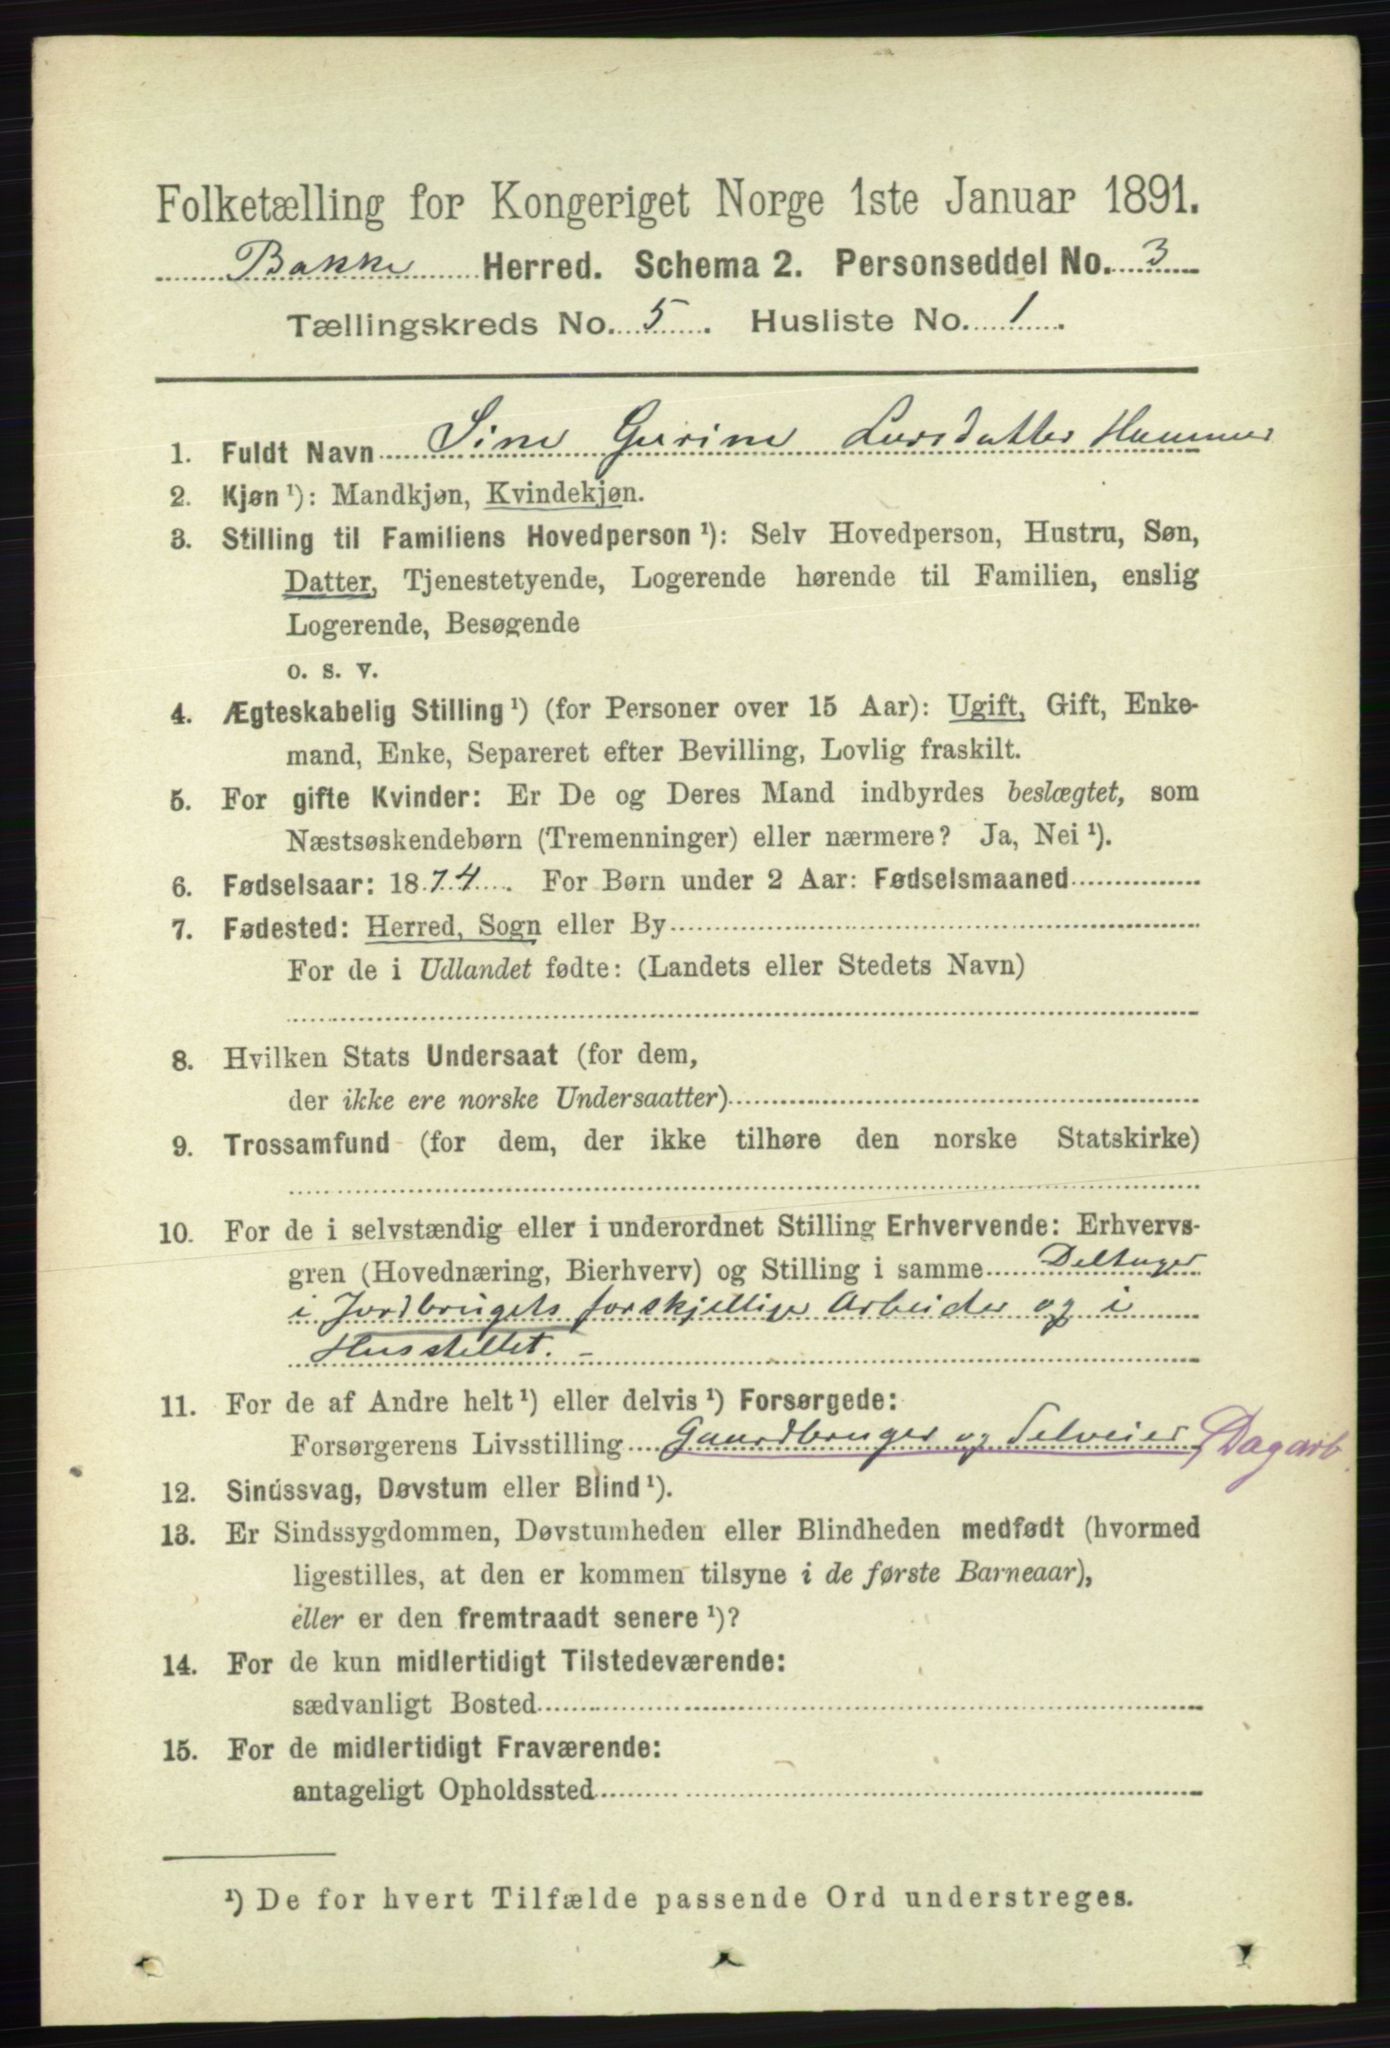 Folketælling for Kongeriget Norge 1ste Januar 1891.
Bakke Herred. Schema 2. Personseddel No. 3
Tællingskreds No. 5. Husliste No. 1.
1. Fuldt Navn Sine Gurine Larsdatter Hammer
2. Kjøn ¹): Mandkjøn, Kvindekjøn.
3. Stilling til Familiens Hovedperson ¹): Selv Hovedperson, Hustru, Søn,
Datter, Tjenestetyende, Logerende hørende til Familien, enslig
Logerende, Besøgende
o. s. v.
4. Ægteskabelig Stilling ¹) (for Personer over 15 Aar): Ugift, Gift, Enke-
mand, Enke, Separeret efter Bevilling, Lovlig fraskilt.
5. For gifte Kvinder: Er De og Deres Mand indbyrdes beslægtet, som
Næstsøskendebørn (Tremenninger) eller nærmere? Ja, Nei ¹).
6. Fødselsaar: 1874. For Børn under 2 Aar: Fødselsmaaned
7. Fødested: Herred, Sogn eller By
For de i Udlandet fødte: (Landets eller Stedets Navn)
8. Hvilken Stats Undersaat (for dem,
der ikke ere norske Undersaatter)
9. Trossamfund (for dem, der ikke tilhøre den norske Statskirke)
10. For de i selvstændig eller i underordnet Stilling Erhvervende: Erhvervs-
gren (Hovednæring, Bierhverv) og Stilling i samme Deltager
i Jordbrugets forskjellige Arbeider og i
Husstellet. –
11. For de af Andre helt ¹) eller delvis ¹) Forsørgede:
Forsørgerens Livsstilling Gaardbruger og Selveier, Dagarb.
12. Sindssvag, Døvstum eller Blind ¹).
13. Er Sindssygdommen, Døvstumheden eller Blindheden medfødt (hvormed
ligestilles, at den er kommen tilsyne i de første Barneaar),
eller er den fremtraadt senere ¹)?
14. For de kun midlertidigt Tilstedeværende:
sædvanligt Bosted
15. For de midlertidigt Fraværende:
antageligt Opholdssted
¹) De for hvert Tilfælde passende Ord understreges.